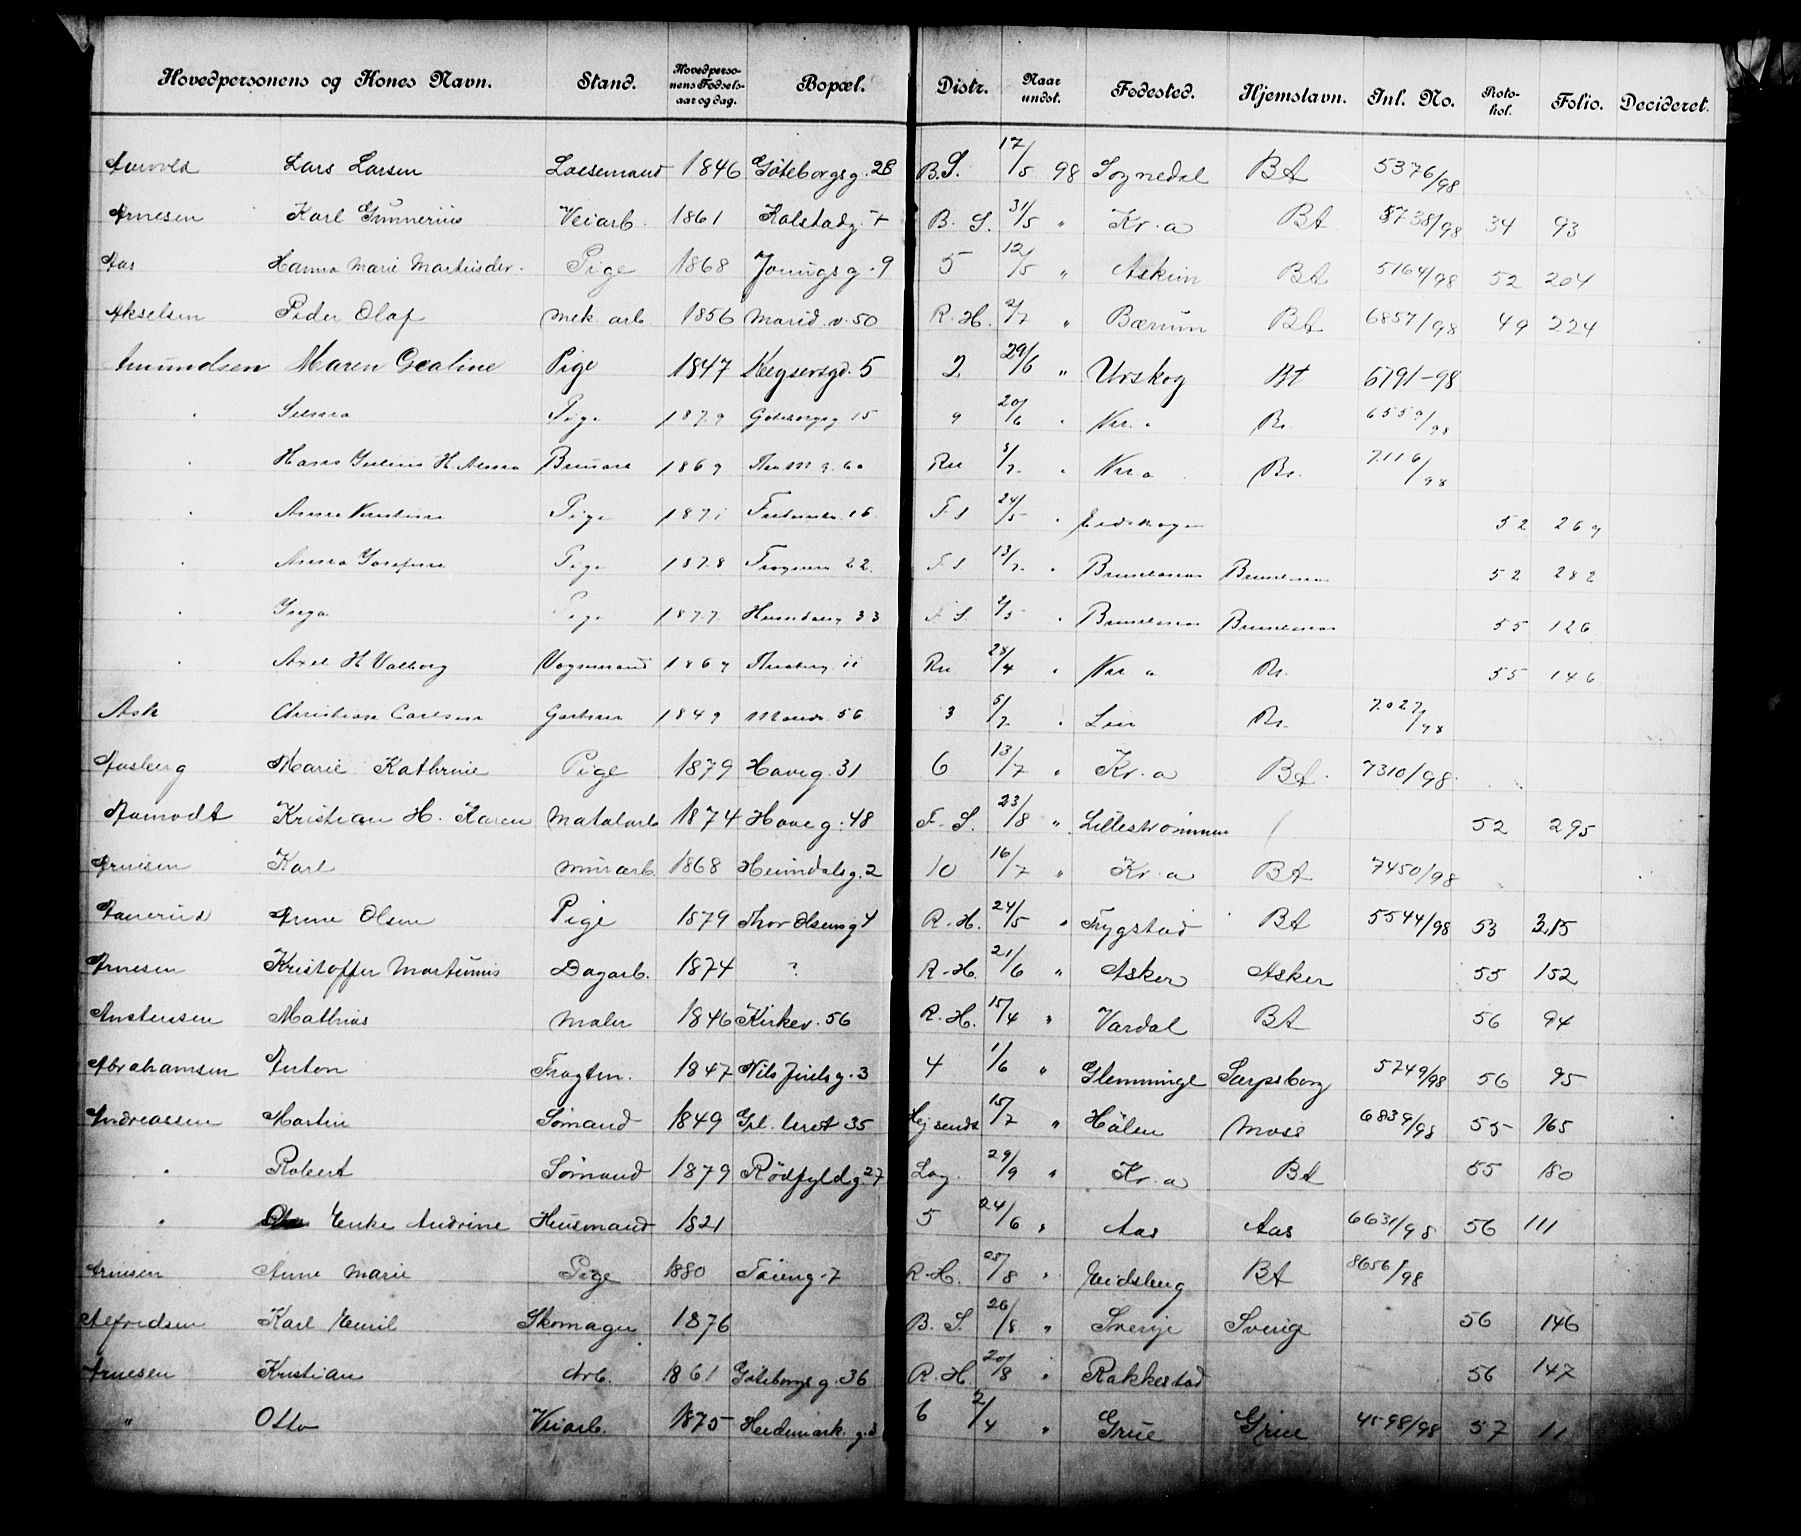 Hovedpersonens og Kones Navn. Stand. Hovedpersonens Fødselsaar og dag. Bopæl. Distr. Naar undst. Fødested. Hjemstavn. Inl. No. Protokol. Folio. Decideret.
Lars Larsen 1846 Göteborgsg. 28 B.S. 17/5 98 Sognedal BA 5376/98
Arnesen Karl Gunnerius Veiarb. 1861 Kalstadg. 7 B. S. 31/5 " Kr.a BA 5738/98 34 93
Aas Hanna Marie Martinsdtr. Pige 1868 Youngsg. 9 5 12/5 " Askim BA 5164/98 52 204
Akselsen Peder Olaf Mek. arb. 1856 Marid.v. 50 R.H. 2/7 " Bærum BA 6857/98 49 224
Amundsen Maren Gealine Pige 1847 Keysersgd. 5 2. 29/6 " Urskog BA 6791-98
" Selma Pige 1879 Göteborgsg 15 9 20/6 " Kr. a Ba. 6550/98
" Hans Julius H. Anna 1869 60 Ru 8/7 " Kr a Ba. 7116/98
" Anna Kristine Pige 1871 16 F S 24/5 " Eidskogen 52 269
" Anna Josefine Pige 1878 Frognerv. 22 F S 13/7 " 52 282
" Inga Pige 1877 33 F S 2/5 " 55 126
" Axel H. Valborg Vognmand 1869 11 Ru 28/4 " Kr a Ba. 55 146
Ask Christian Carlsen Gartner 1849 Marids. 56 3 5/7 " Lier Ba. 7027/98
Aasberg Marie Kathrine Pige 1879 Haveg. 31 6 13/7 " Kr.a BA. 7310/98
Aamodt Kristian H. Karen 1874 Haveg. 48 F. S. 23/8 " Lillestrømmen 52 295
Arnesen Karl Murarb. 1868 Heimdalsg. 2 10 16/7 " Kr.a BA 7450/98
Anne Olsen Pige 1879 Thor Olsensg 4 R.H. 24/5 " Trygstad BA 5544/98 53 315
Arnesen Kristoffer Martinius Dagarb. 1874 ? R.H. 21/6 " Asker Asker 55 152
Anstensen Mathias Maler 1846 Kirkev. 56 R.H. 15/4 " Vardal BA 56 94
Abrahamsen Anton Fragtm. 1847 Nils Juelsg. 3 4 1/6 " Glemminge Sarpsborg 5749/98 56 95
Andreassen Martin Sømand 1849 Gml. 35 15/7 " Hölen Moss 6839/98 55 165
" Robert Sømand 1879 Rødfyldg 27 Lag. 29/9 " Kr.a BA 55 180
" Enke Andrine Husmand 1821 5 24/6 " Aas Aas 6631/98 56 111
Arnesen Anne Marie Pige 1880 Töieng. 7 R.H. 25/8 " Eidsberg BA 8656/98
Alfredsen Karl Emil Skomager 1876 B. S. 26/8 " Sverije Sverige 56 146
Arnesen Kristian Arb. 1861 Göteborgsg. 36 R.H. 20/8 " Rakkestad 56 147
" Otto Veiarb. 1875 Hedemark.g. 6 2/4 " Grue Grue 4598/98 57 11